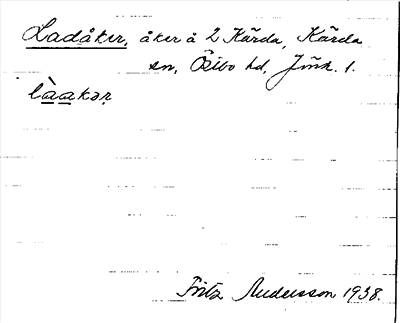 Ladåker, åker å 2 Kärda, Kärda
sn, Östbo hd, Jönk. l.
làakər
Fritz Andersson 1938.